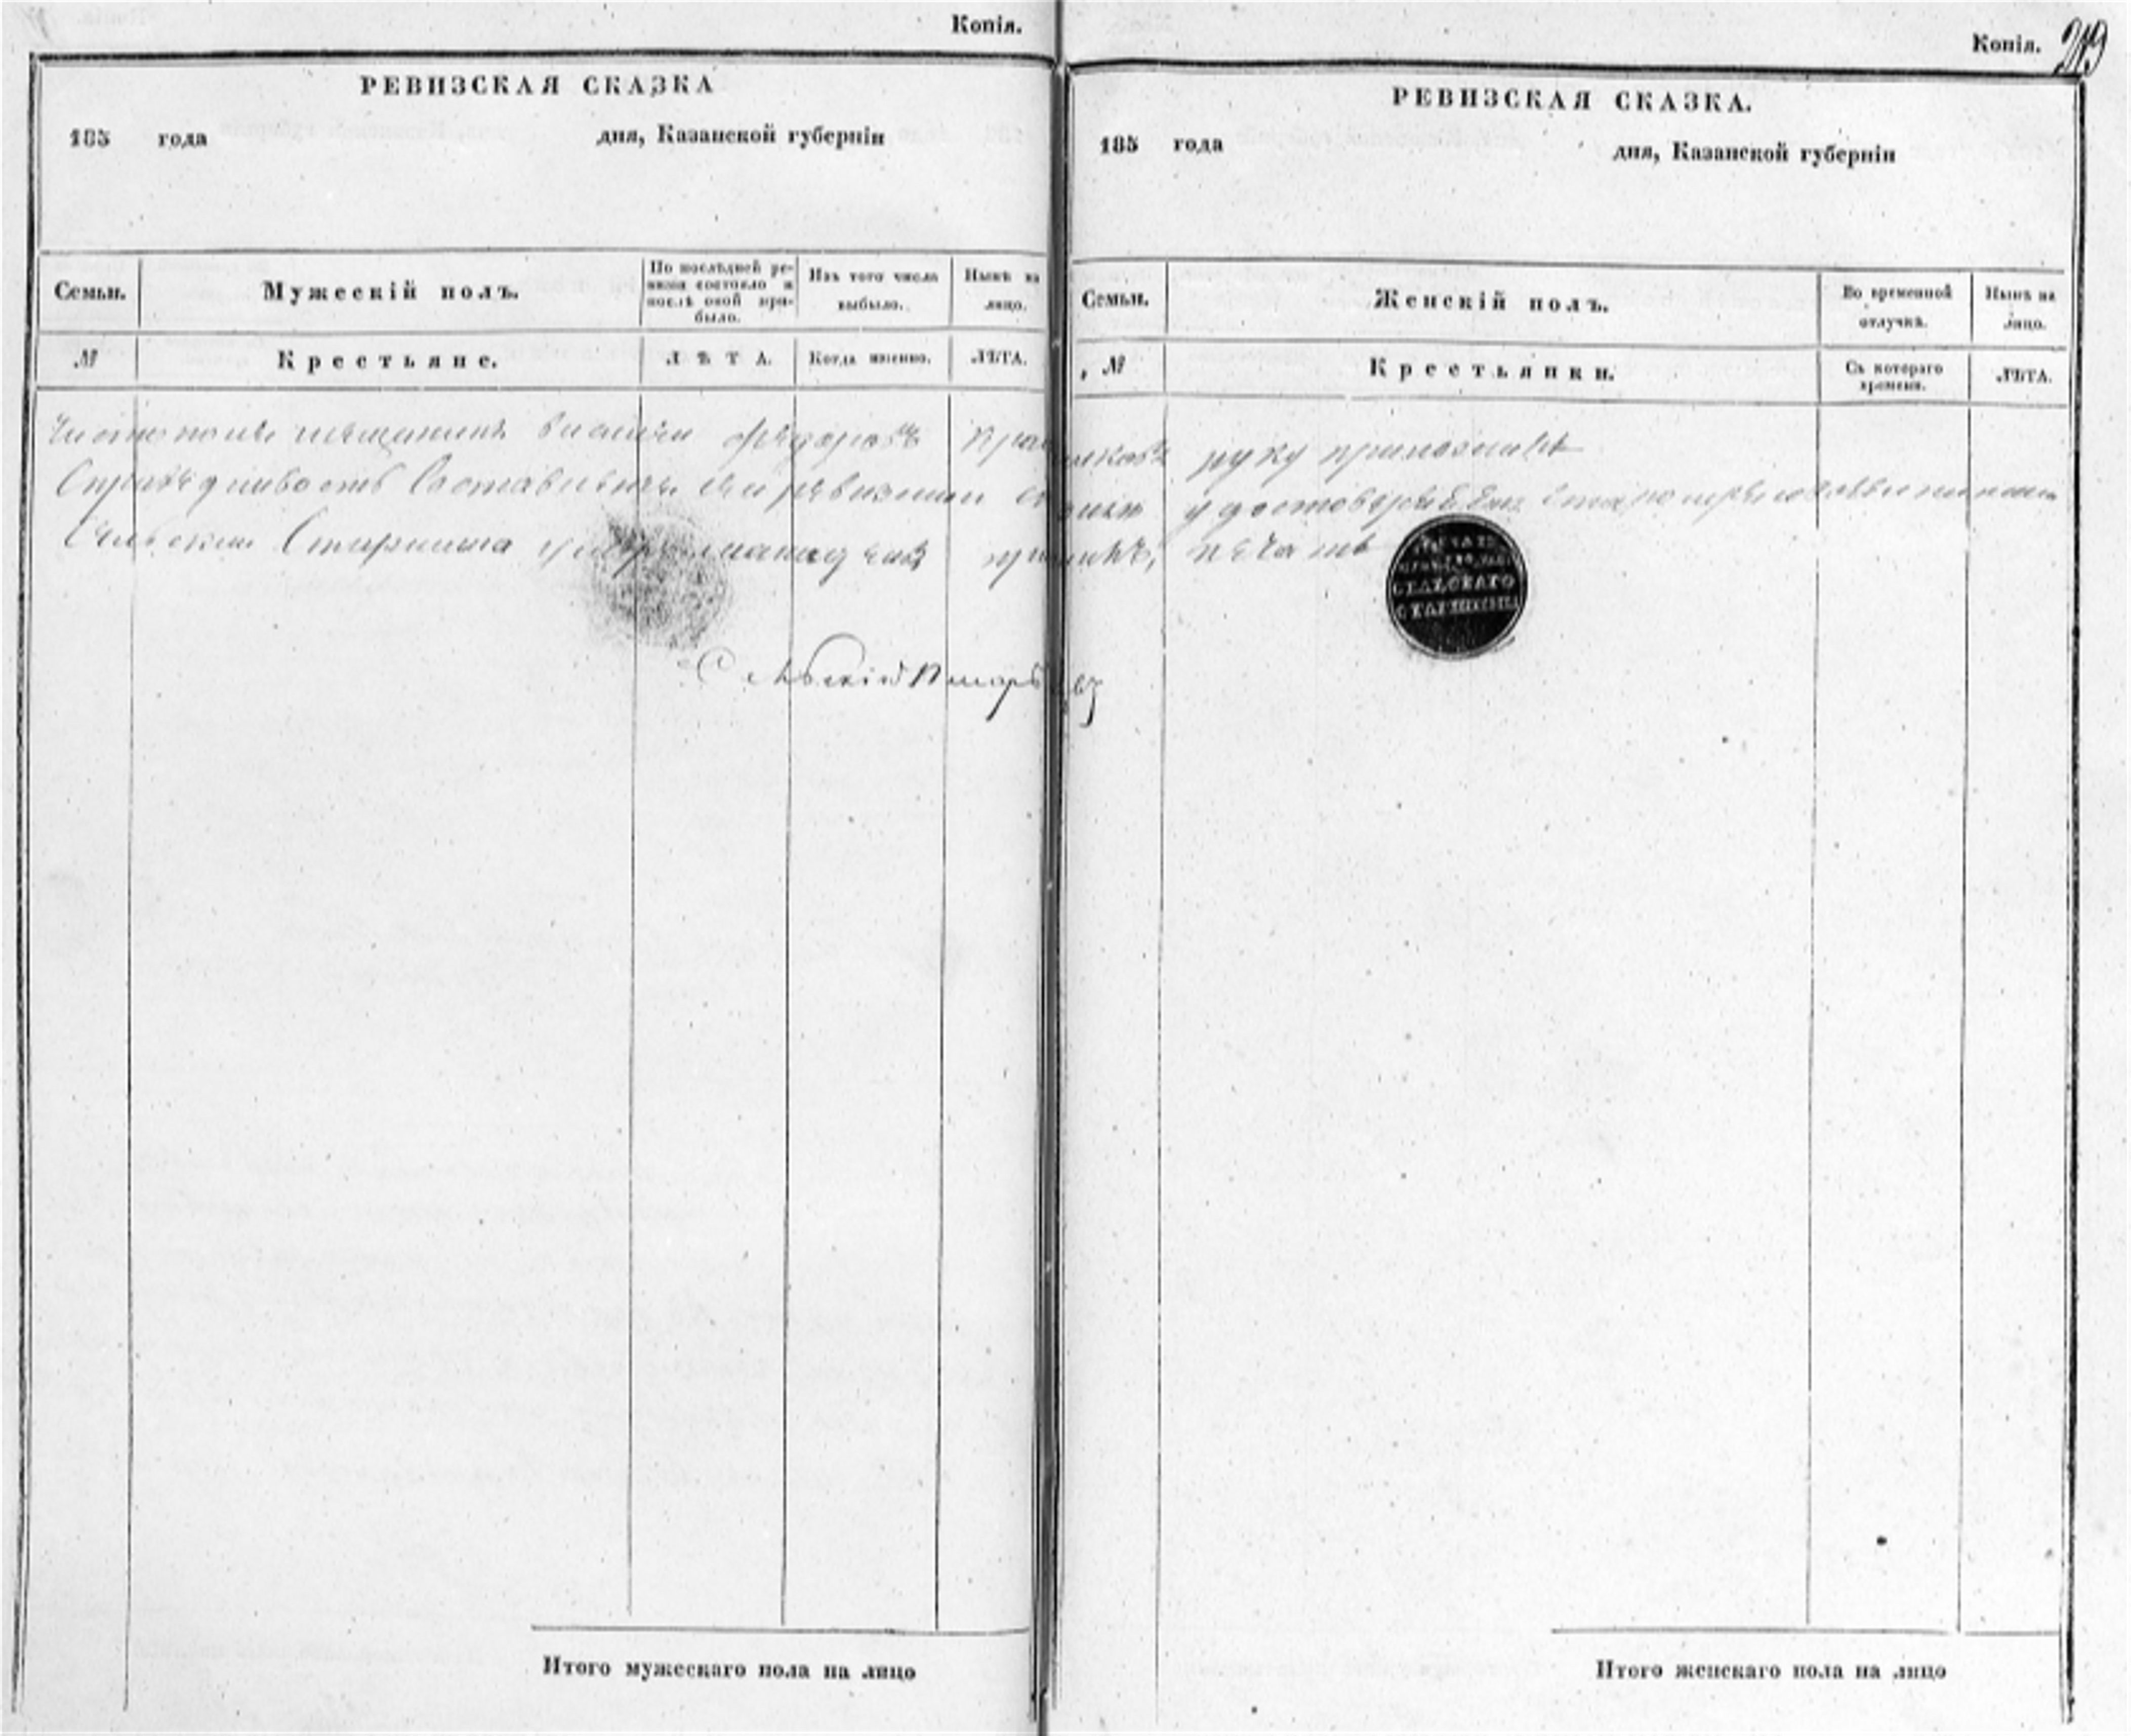 Копія.
РЕВИЗСКАЯ СКАЗКА
185 года дня, Казанской губерніи
Семьи.
Мужескій полъ.
По послѣдней ре-
визіи состояло и
послѣ оной при-
было.
Изъ того числа
выбыло.
Нынѣ на
лицо.
№
Крестьяне.
ЛѢТА.
Когда именно.
ЛѢТА.
Копія.
219
РЕВИЗСКАЯ СКАЗКА.
185 года дня, Казанской губерніи
Семьи.
Женскій полъ.
Во временной
отлучкѣ.
Нынѣ на
лицо.
№
Крестьянки.
Съ котораго
времени.
ЛѢТА.
мещанинъ Василей Федоровъ руку приложилъ
Справедливость Составленія сей ревизкии
Сельскии Старшина печать
СЕЛЬСКАГО
СТАРШИНЫ
Сельскій Писарь
Итого мужескаго пола на лицо
Итого женскаго пола на лицо